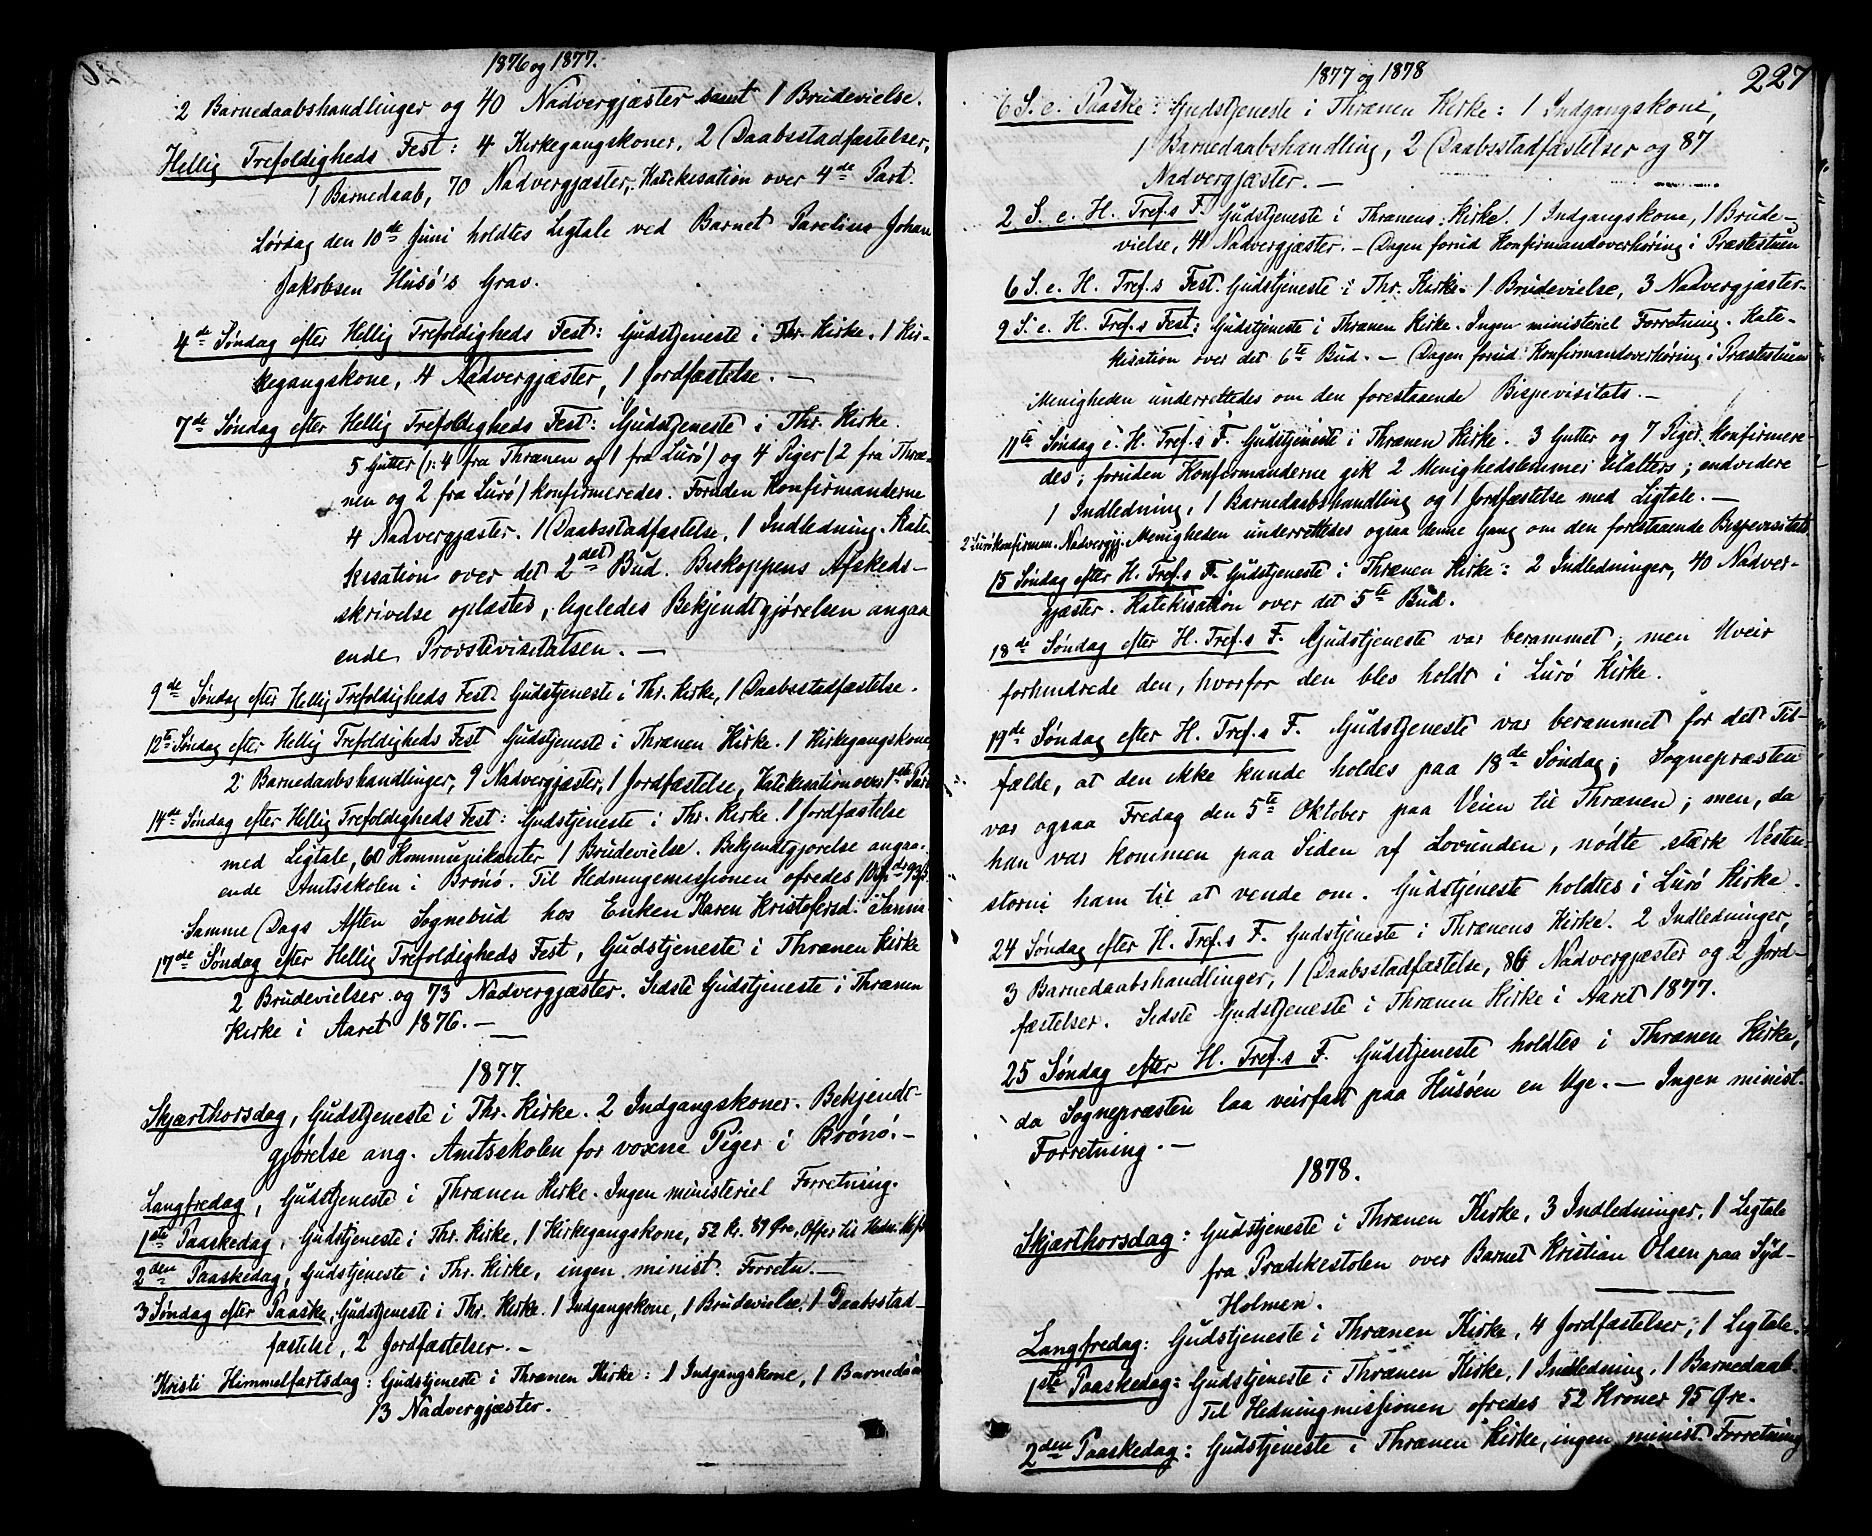 1876 og 1877.
2 Barnedaabshandlinger og 40 Nadvergjæster samt 1 Brudevielse.
Hellig Trefoldigheds Fest: 4 Kirkegangskoner, 2 Daabsstadfæstelser,
1 Barnedaab, 70 Nadvergjæster, Katekisation over 4de Part.
Lørdag den 10de Juni holdtes Ligtale ved Barnet Parelius Johan
Jakobsen Husø's Grav.
4de Søndag efter Hellig Trefoldigheds Fest: Gudstjeneste i Thr. Kirke. 1 Kir-
kegangskone, 4 Nadvergjæster, 1 Jordfæstelse. —
7de Søndag efter Hellig Trefoldigheds Fest: Gudstjeneste i Thr. Kirke.
5 Gutter (ɔ: 4 fra Thrænen og 1 fra Lurø) og 4 Piger (2 fra Thræ-
nen og 2 fra Lurø) konfirmeredes. Foruden Konfirmanderne
4 Nadvergjæster. 1 Daabsstadfæstelse, 1 Indledning. Kate-
kisation over det 2det Bud. Biskoppens Afskeds-
skrivelse oplæstes, ligeledes Bekjendtgjørelsen angaa-
ende Provstevisitatsen. —
9de Søndag efter Hellig Trefoldigheds Fest. Gudstjeneste i Thr. Kirke, 1 Daabsstadfæstelse.
12te Søndag efter Hellig Trefoldigheds Fest Gudstjeneste i Thrænen Kirke. 1 Kirkegangskone,
2 Barnedaabshandlinger, 9 Nadvergjæster, 1 Jordfæstelse, Katekisation over 1ste Part
14de Søndag efter Hellig Trefoldigheds Fest: Gudstjeneste i Thr. Kirke. 1 Jordfæstelse
med Ligtale, 60 Kommunikanter 1 Brudevielse. Bekjendtgjørelse angaa-
ende Amtsskolen i Brønø. Til Hedningemissionen ofredes
Samme Dags Aften Sognebud hos Enken Karen Kristofersd. i Sanna
17de Søndag efter Hellig Trefoldigheds Fest, Gudstjeneste i Thrænen Kirke
2 Brudevielser og 73 Nadvergjæster. Sidste Gudstjeneste i Thrænen
Kirke i Aaret 1876. —
1877.
Skjærthorsdag, Gudstjeneste i Thr. Kirke. 2 Indgangskoner. Bekjendt-
gjørelse ang. Amtsskolen for voxne Piger i Brønø. —
Langfredag, Gudstjeneste i Thrænen Kirke. Ingen ministeriel Forretning.
1ste Paaskedag, Gudstjeneste i Thr. Kirke, 1 Kirkegangskone, 52 Kr. 89 Øre, Offer til Hedn. Misj.
2den Paaskedag, Gudstjeneste i Thr. Kirke, ingen minist. Forretn. —
3 Søndag efter Paaske, Gudstjeneste i Thr. Kirke. 1 Indgangskone, 1 Brudevielse, 1 Daabsstad-
fæstelse, 2 Jordfæstelser. —
Kristi Himmelfartsdag: Gudstjeneste i Thrænen Kirke: 1 Indgangskone, 1 Barnedaab
13 Nadvergjæster.
1877 og 1878
227
6 S. e. Paaske: Gudstjeneste i Thrænen Kirke: 1 Indgangskone,
1 Barnedaabshandling, 2 Daabsstadfæstelser og 87
Nadvergjæster. —
2 S. e. H. Tref.s F. Gudstjeneste i Thrænens Kirke. 1 Indgangskone, 1 Brude-
vielse, 41 Nadvergjæster. — Dagen forud Konfirmandoverhøring i Præstestuen
6 S. e. H. Tref.s Fest. Gudstjeneste i Thr. Kirke. 1 Brudevielse, 3 Nadvergjæster.
9 S. e. H. Tref.s Fest: Gudstjeneste i Thrænen Kirke. Ingen ministeriel Forretning. Kate-
kisation over det 6te Bud. — Dagen forud Konfirmandoverhøring i Præstestuen
Menigheden underrettedes om den forestaaende Bispevisitats. —
11te Søndag e. H. Tref.s F. Gudstjeneste i Thrænen Kirke. 3 Gutter og 7 Piger konfirmere-
des; foruden Konfirmanderne gik 2 Menighedslemmer tilalters; endvidere
1 Indledning, 1 Barnedaabshandling og 1 Jordfæstelse med Ligtale. —
2 Lurøkonfirmn. Nadvergj. Menigheden underrettedes ogsaa denne Gang om den forestaaende Bispevisitats
15 Søndag efter H. Tref.s F. Gudstjeneste i Thrænen Kirke: 2 Indledninger, 40 Nadver-
gjæster. Katekisation over det 5te Bud.
18de Søndag efter H. Tref.s F. Gudstjeneste var berammet; men Uveir
forhindrede den, hvorfor den blev holdt i Lurø Kirke.
19de Søndag efter H. Tref.s F. Gudstjeneste var berammet for det Til-
fælde, at den ikke kunde holdes paa 18de Søndag; Sognepræsten
var ogsaa Fredag den 5te Oktober paa Veien til Thrænen; men, da
han var kommen paa Siden af Lovunden, nødte stærk Vesten-
storm ham til at vende om. Gudstjeneste holdtes i Lurø Kirke.
24 Søndag efter H. Tref.s F. Gudstjeneste i Thrænens Kirke. 2 Indledninger,
3 Barnedaabshandlinger, 1 Daabsstadfæstelse, 86 Nadvergjæster og 2 Jord-
fæstelser. Sidste Gudstjeneste i Thrænen Kirke i Aaret 1877.
25 Søndag efter H. Tref.s F. Gudstjeneste holdtes i Thrænen Kirke,
da Sognepræsten laa veirfast paa Husøen en Uge. — Ingen minist.
Forretning. —
1878.
Skjærthorsdag: Gudstjeneste i Thrænen Kirke, 3 Indledninger, 1 Ligtale
fra Prædikestolen over Barnet Kristian Olsen paa Syd-
Holmen.
Langfredag: Gudstjeneste i Thrænen Kirke, 4 Jordfæstelser, 1 Ligtale.
1ste Paaskedag: Gudstjeneste i Thrænen Kirke, 1 Indledning, 1 Barnedaab.
Til Hedningmissionen ofredes 52 Kroner 95 Øre.
2den Paaskedag: Gudstjeneste i Thrænen Kirke, ingen minist. Forretning